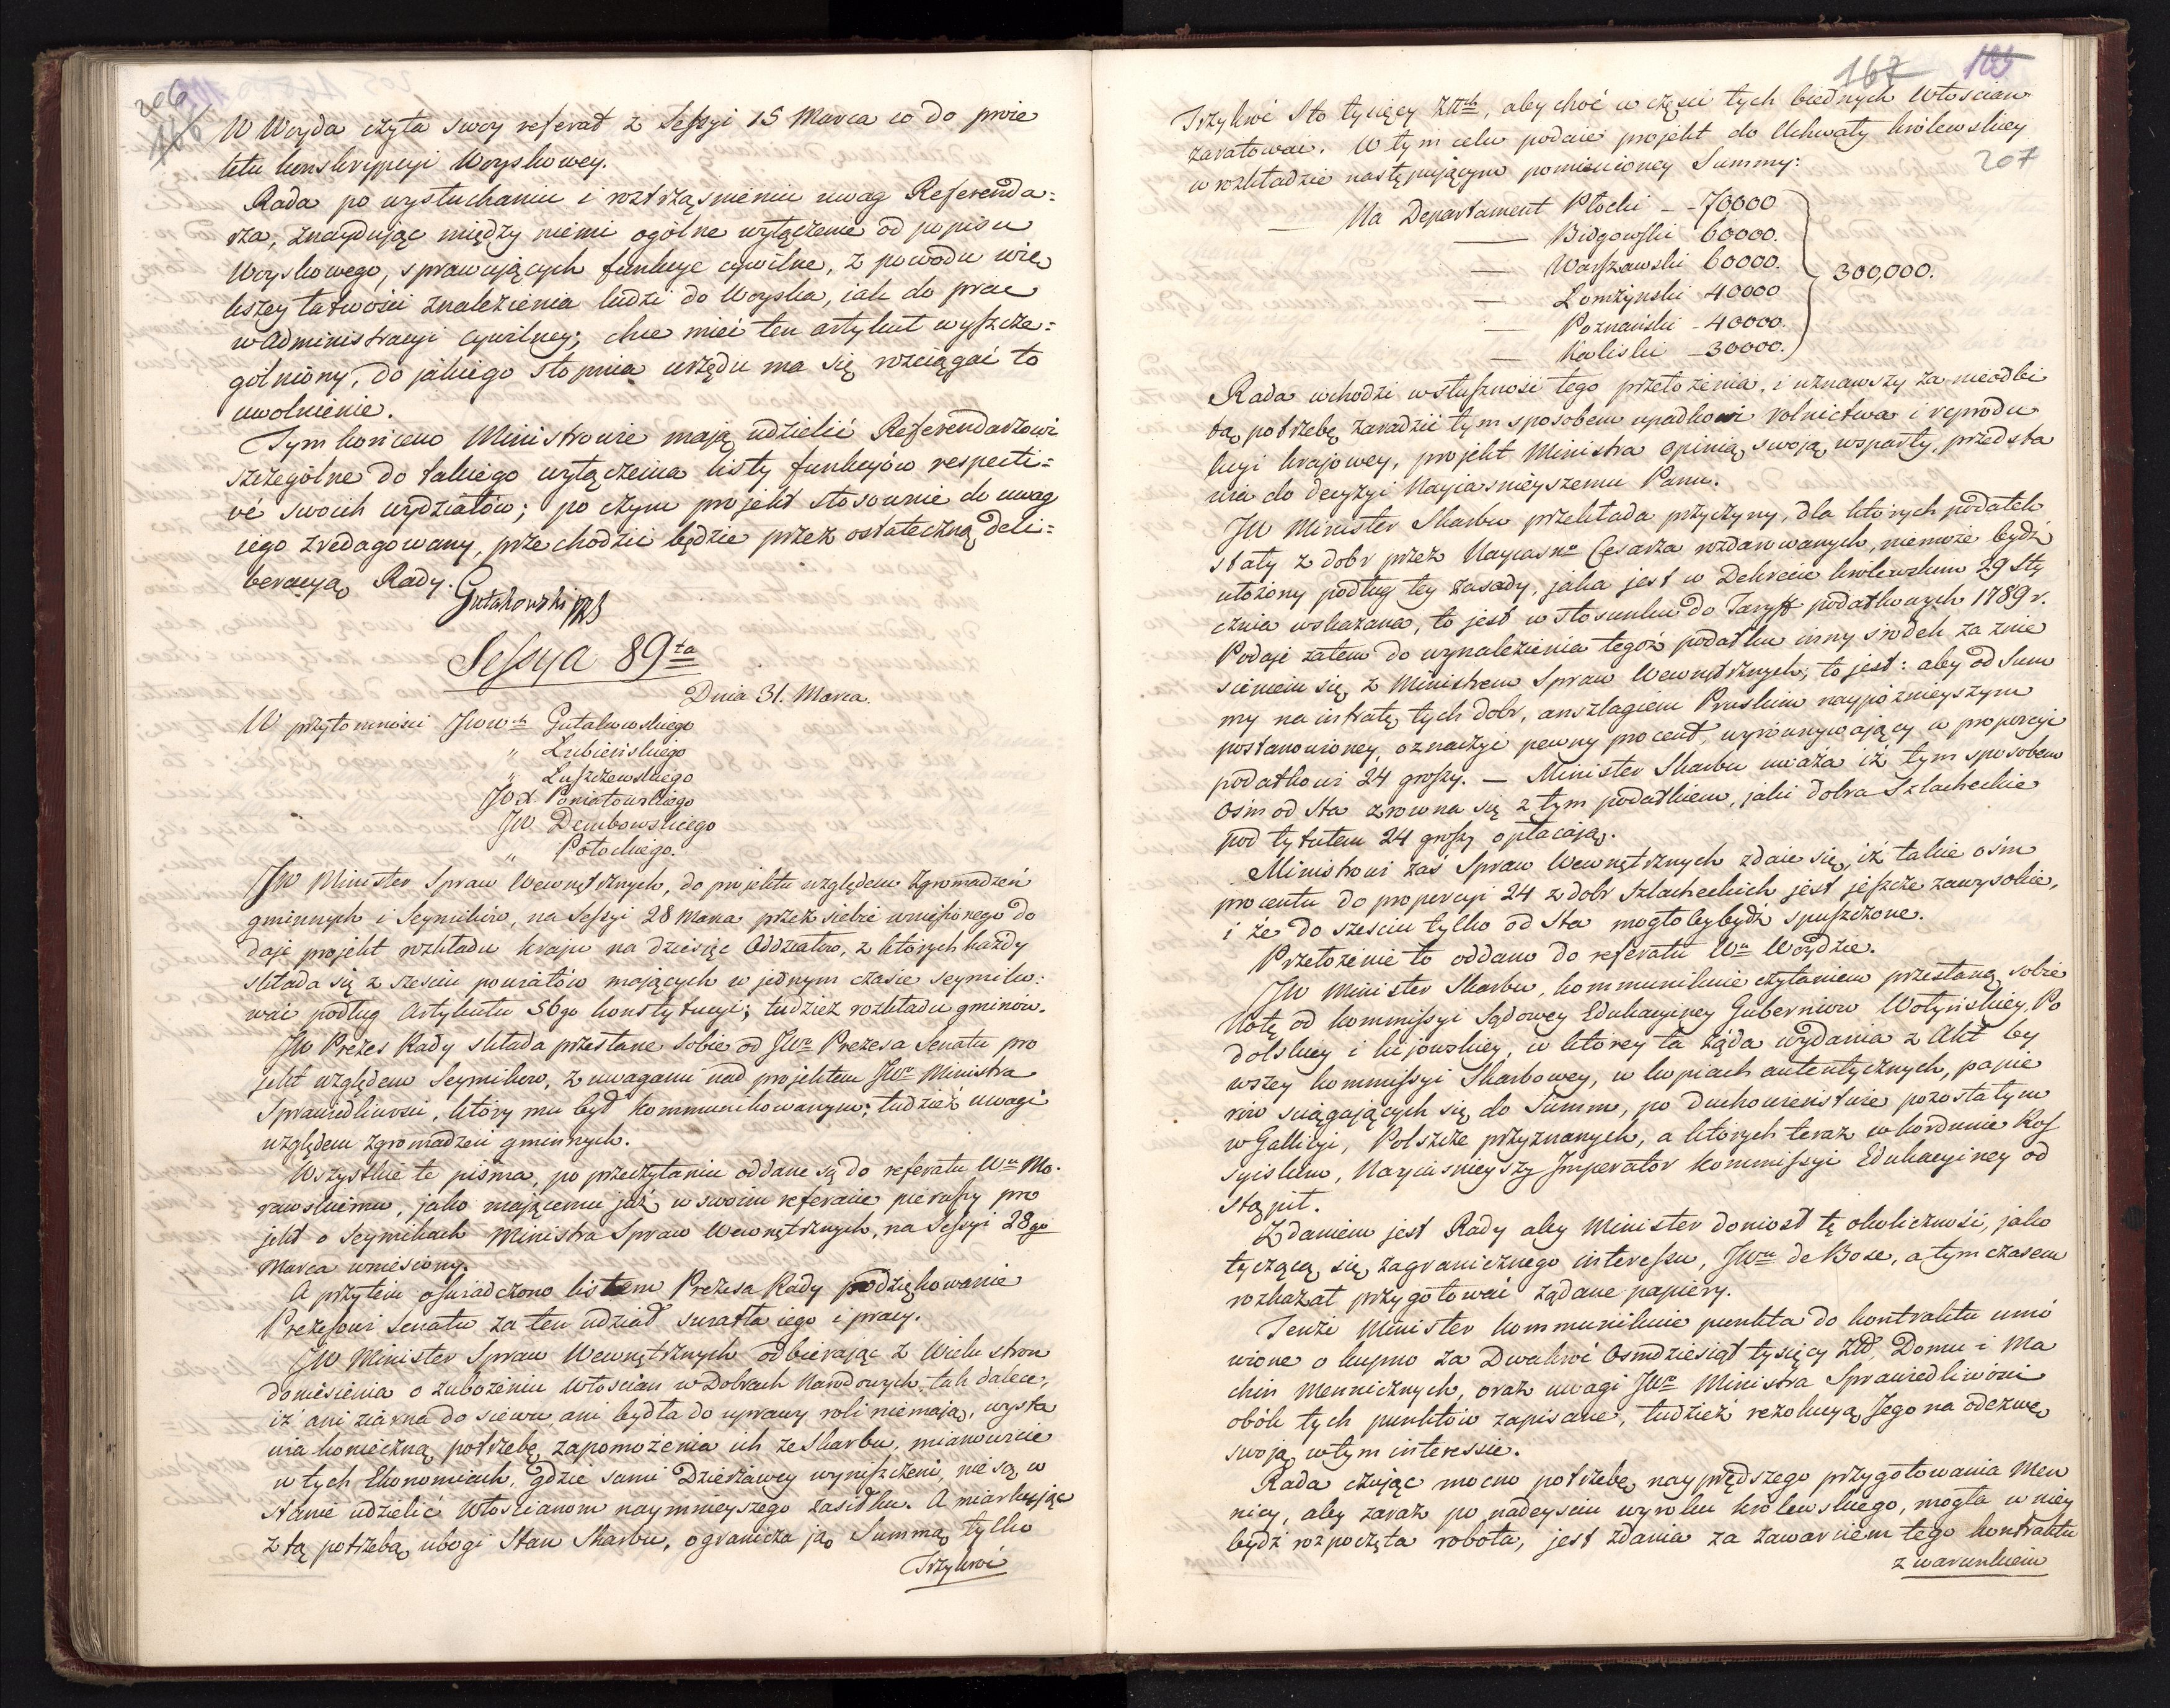 206
116
W Woyda czyta swoy referat z Sessyi 15 Marca co do proie
ktu konskrypcyi Woyskowey.
Rada po wysłuchaniu i roztrząśnieniu uwag Referenda:
rza, znaydując między niemi ogólne wyłączenie od popisu
Woyskowego, sprawujących funkcye cywilne, z powodu wię
kszey łatwości znalezienia ludzi do Woyska, iak do prac
w Administracyi cywilney; chce mieć ten artykuł wyszcze:
gólniony, do jakiego stopnia urzędu ma się rozciągać to
uwolnienie.
Tym końcem Ministrowie mają udzielić Referendarzowi
szczególne do takiego wyłączenia listy funkcyów respecti:
vé swoich wydziałów; po czym projekt stosownie do uwag
iego zredagowany, przechodzić będzie przez ostateczną deli:
beracyą Rady.
Gutakowski PRS
Sessya 89ta
Dnia 31. Marca.
W przytomności JWWch Gutakowskiego
" Łubieńskiego
" Łuszczewskiego
JOX. Poniatowskiego
JW. Dembowskiego
" Potockiego.
JW Minister Spraw Wewnętrznych, do projektu względem Zgromadzeń
gminnych i Seymików, na Sessyi 28 Marca przez siebie wniesionego do
daje projekt rozkładu kraju na dziesięć Oddziałów, z których każdy
składa się z sześciu powiatów mających w jednym czasie seymiko:
wać podług Artykułu 56go konstytucyi; tudzież rozkładu gminów.
JW Prezes Rady składa przesłane sobie od JWo Prezesa Senatu pro
jekt względem Seymików, z uwagami nad projektem JWo Ministra
Sprawiedliwości, który mu był kommunikowanym; tudzież uwagi
względem zgromadzeń gminnych.
Wszystkie te pisma, po przeczytaniu oddane są do referatu Wu Mo.
rawskiemu, jako mającemu już w swoim referacie pierwszy pro
jekt o Seymikach Ministra Spraw Wewnętrznych, na Sessyi 28go
Marca wniesiony.
A przytém oświadczono listem Prezesa Rady podziękowanie
Prezesowi Senatu za ten udział światła iego i pracy.
JW Minister Spraw Wewnętrznych odbierając z Wielu stron
doniesienia o zubożeniu Włościan w Dobrach Narodowych tak dalece,
iż ani ziarna do siewu ani bydła do uprawy roli niemają, wysta
wia konieczną potrzebę zapomożenia ich ze Skarbu, mianowicie
w tych Ekonomiach, gdzie sami Dzierżawcy wyniszczeni, nie są w
stanie udzielić Włościanom naymnieyszego zasiłku. A miarkując
z tą potrzebą ubogi Stan Skarbu, ogranicza ją Summą tylko
Trzykroć
167 165
207
Trzykroć Sto tysięcy Złtch, aby choć w części tych biednych Włościan
zaratować. W tym celu podaie projekt do Uchwały królewskiey
w rozkładzie następującym pomienioney Summy:
— Na Departament Płocki — 70000
— Bidgowski 60000.
— Warszawski 60000.
— Łomżynski 40000
— Poznański - 40000.
— Kaliski - 30000.
300,000.
Rada wchodzi w słuszność tego przełożenia, i uznawszy za nieodbi
tą potrzebę zaradzić tym sposobem upadkowi rolnictwa i reprodu
kcyi krajowey, projekt Ministra opinią swoją wsparty, przedsta
wia do decyzyi Nayiaśnieyszemu Panu.
JW Minister Skarbu przekłada przyczyny, dla których podatek
stały z dobr przez Nayiasno Cesarza rozdarowanych, niemoże bydź
ułożony podług tey zasady, jaka jest w Dekrecie królewskim 29 Sty
cznia wskazana, to jest w stosunku do Taryff podatkowych 1789 r.
Podaje zatem do wynalezienia tegoż podatku inny środek za znie
sieniem się z Ministrem Spraw Wewnętrznych; to jest: aby od Sum
my na intratę tych dobr, anszlagiem Pruskim naypóźnieyszym
postanowioney, oznaczyć pewny procent, wyrównywający w proporcyi
podatkowi 24 groszy. — Minister Skarbu uważa iż tym sposobem
Ośm od Sta zrówna się z tym podatkiem, jaki dobra Szlacheckie
pod tytułem 24 groszy opłacają.
Ministrowi zaś Spraw Wewnętrznych zdaie się, iż takie ośm
procentu do proporcyi 24 z dobr Szlacheckich jest jeszcze zawysokie,
i że do sześciu tylko od Sta mogłoby bydź spuszczone.
Przełożenie to oddano do referatu Wu Woydzie.
JW Minister Skarbu, kommunikuie czytaniem przesłaną sobie
Notę od kommissyi Sądowey Edukacyiney Guberniów Wołyńskiey, Po
dolskiey i kijowskiey, w którey ta żąda wydania z Akt by
wszey kommissyi Skarbowey, w kopiach autentycznych, papie
rów ściągających się do Summ, po duchowieństwie pozostałym
w Gallicyi, Polszcze przyznanych, a których teraz w kordonie Ros
syiskim, Nayiaśnieyszy Imperator kommissyi Edukacyiney od
stąpił.
Zdaniem jest Rady aby Minister doniosł tę okoliczność, jako
tyczącą się zagranicznego interesu, JWmu de Bose, a tymczasem
rozkazał przygotować żądane papiery.
Tenże Minister kommunikuie punkta do kontraktu umó
wione o kupno za Dwakroć Ośmdziesiąt tysięcy Złł, Domu i Ma
chin Mennicznych, oraz uwagi JWo Ministra Sprawiedliwości
obók tych punktów zapisane, tudzież rezolucyą Jego na odezwę
swoją w tym interessie.
Rada czując mocno potrzebę nayprędszego przygotowania Men
nicy, aby zaraz po nadeyściu wyroku królewskiego, mogła w niey
bydź rozpoczęta robota, jest zdania za zawarciem tego kontraktu
z warunkiem